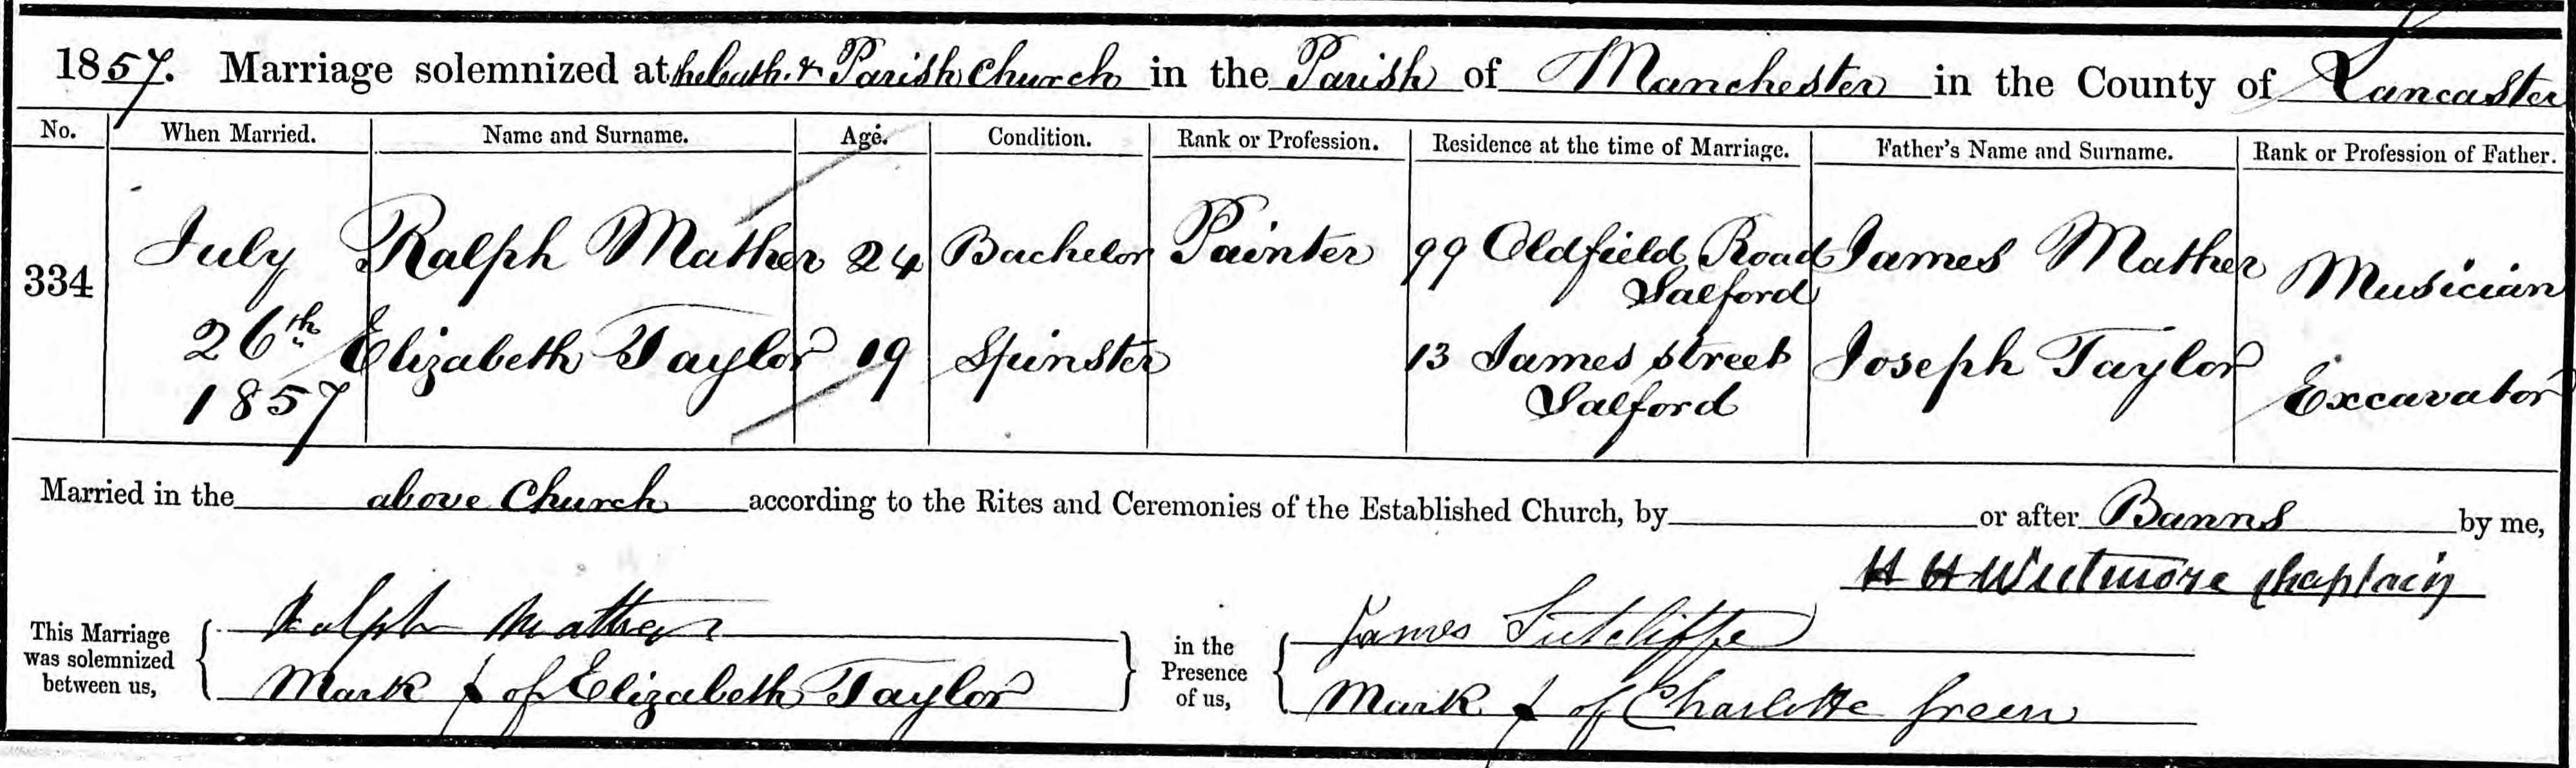 1857. Marriage solemnized at the Cath. & Parish Church in the Parish of Manchester in the County of Lancaster
No. When Married. Name and Surname. Age. Condition. Rank or Profession. Residence at the time of Marriage. Father's Name and Surname. Rank or Profession of Father.
334 July 26th 1857 Ralph Mather 24 Bachelor Painter 99 Oldfield Road Salford James Mather Musician
Elizabeth Taylor 19 Spinster 13 James street Salford Joseph Taylor Excavator
Married in the above Church according to the Rites and Ceremonies of the Established Church, by or after Banns by me,
H H Westmore Chaplain
This Marriage was solemnized between us,
Ralph Mather
Mark X of Elizabeth Taylor
in the Presence of us,
James Sutcliffe
Mark X of Charlotte Green